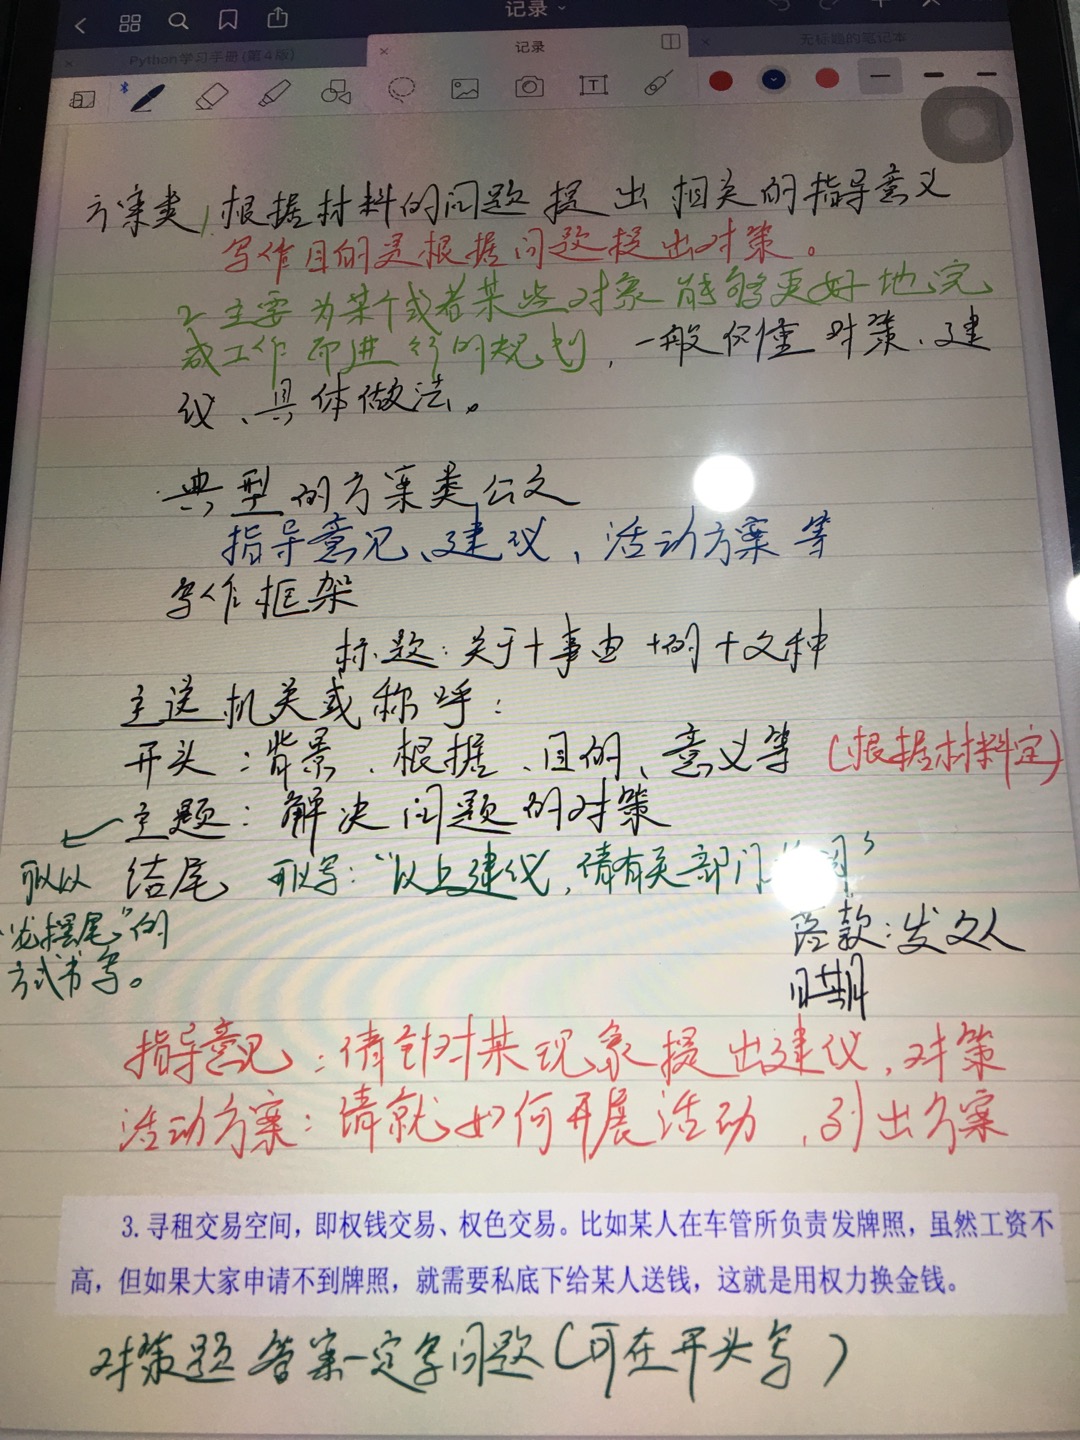 记录
Python学习手册(第4版)
记录
无标题的笔记本
方案类 1.根据材料的问题提出相关的指导意义
写作目的是根据问题提出对策。
2 主要为某个或者某些对象能够更好地完
成工作而进行的规划,一般仅懂对策、建
议、具体做法。
典型的方案类公文
指导意见、建议、活动方案等
写作框架
标题:关于+事由+的+文种
主送机关或称呼:
开头:背景、根据、目的、意义等(根据材料定)
主题:解决问题的对策
可以 结尾 可以写:“以上建议,请有关部门
“龙摆尾”的
方式书写。
落款:发文人
日期
指导意见:请针对某现象提出建议,对策
活动方案:请就如何开展活动,列出方案
3. 寻租交易空间,即权钱交易、权色交易。比如某人在车管所负责发牌照,虽然工资不
高,但如果大家申请不到牌照,就需要私底下给某人送钱,这就是用权力换金钱。
对策题答案一定写问题(可在开头写)